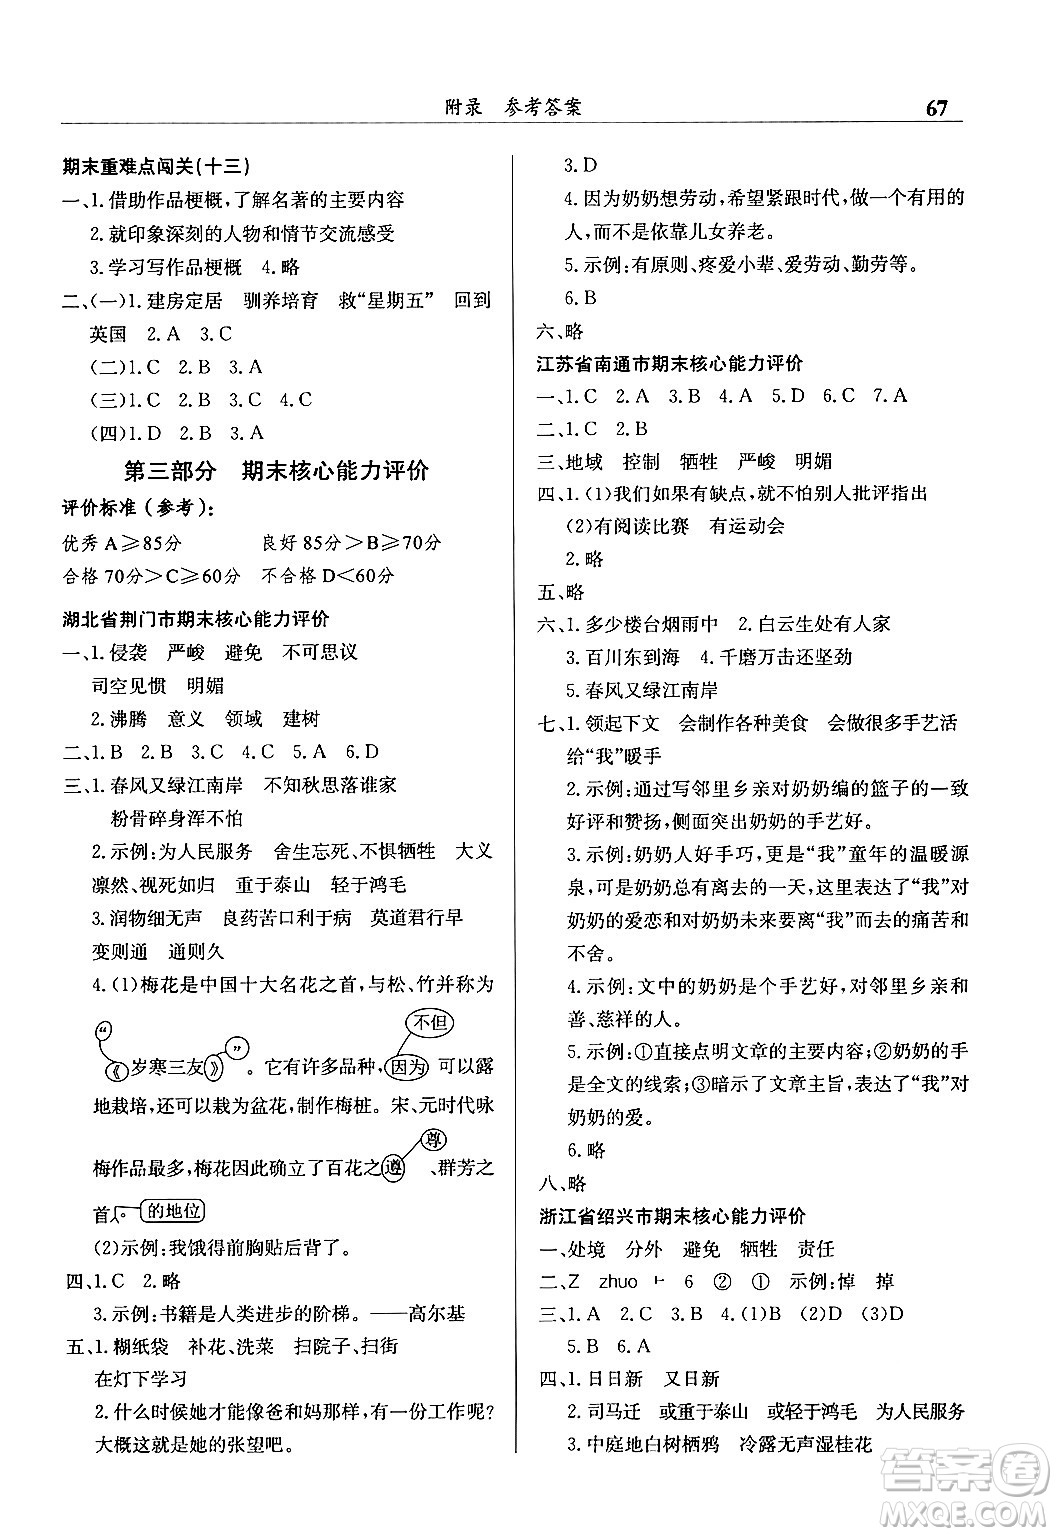 附录 参考答案 67
期末重难点闯关(十三)
一、1.借助作品梗概,了解名著的主要内容
2.就印象深刻的人物和情节交流感受
3.学习写作品梗概 4.略
二、(一)1.建房定居 驯养培育 救“星期五” 回到
英国 2.A 3.C
(二)1.C 2.B 3.A
(三)1.C 2.B 3.C 4.C
(四)1.D 2.B 3.A
第三部分 期末核心能力评价
评价标准(参考):
优秀A≥85分 良好85分>B≥70分
合格70分>C≥60分 不合格D<60分
湖北省荆门市期末核心能力评价
一、1.侵袭 严峻 避免 不可思议
司空见惯 明媚
2.沸腾 意义 领域 建树
二、1.B 2.B 3.C 4.C 5.A 6.D
三、1.春风又绿江南岸 不知秋思落谁家
粉骨碎身浑不怕
2.示例:为人民服务 舍生忘死、不惧牺牲 大义
凛然、视死如归 重于泰山 轻于鸿毛
3.润物细无声 良药苦口利于病 莫道君行早
变则通 通则久
4.(1)梅花是中国十大名花之首,与松、竹并称为
“ ” 不但
《岁寒三友》。它有许多品种,因为可以露
地栽培,还可以栽为盆花,制作梅桩。宋、元时代咏
尊
梅作品最多,梅花因此确立了百花之遵、群芳之
首。的地位
(2)示例:我饿得前胸贴后背了。
四、1.C 2.略
3.示例:书籍是人类进步的阶梯。——高尔基
五、1.糊纸袋 补花、洗菜 扫院子、扫街
在灯下学习
2.什么时候她才能像爸和妈那样,有一份工作呢?
大概这就是她的张望吧。
3.D
4.因为奶奶想劳动,希望紧跟时代,做一个有用的
人,而不是依靠儿女养老。
5.示例:有原则、疼爱小辈、爱劳动、勤劳等。
6.B
六、略
江苏省南通市期末核心能力评价
一、1.C 2.A 3.B 4.A 5.D 6.C 7.A
二、1.C 2.B
三、地域 控制 牺牲 严峻 明媚
四、1.(1)我们如果有缺点,就不怕别人批评指出
(2)有阅读比赛 有运动会
2.略
五、略
六、1.多少楼台烟雨中 2.白云生处有人家
3.百川东到海 4.千磨万击还坚劲
5.春风又绿江南岸
七、1.领起下文 会制作各种美食 会做很多手艺活
给“我”暖手
2.示例:通过写邻里乡亲对奶奶编的篮子的一致
好评和赞扬,侧面突出奶奶的手艺好。
3.示例:奶奶人好手巧,是“我”童年的温暖源
泉,可奶奶总有离去的一天,这里表达了“我”对
奶奶的爱恋和对奶奶未来要离“我”而去的痛苦和
不舍。
4.示例:文中的奶奶是个手艺好,对邻里乡亲和
善、慈祥的人。
5.示例:①直接点明文章的主要内容;②奶奶的手
是全文的线索;③暗示了文章主旨,表达了“我”对
奶奶的爱。
6.略
八、略
浙江省绍兴市期末核心能力评价
一、处境 分外 避免 牺牲 责任
二、Z zhuo ⺊ 6 ② ① 示例:悼 掉
三、1.A 2.D 3.A 4.(1)B (2)D (3)D
5.B 6.A
四、1.日日新 又日新
2.司马迁 或重于泰山 或轻于鸿毛 为人民服务
3.中庭地白树栖鸦 冷露无声湿桂花
答案圈
MXQE.COM